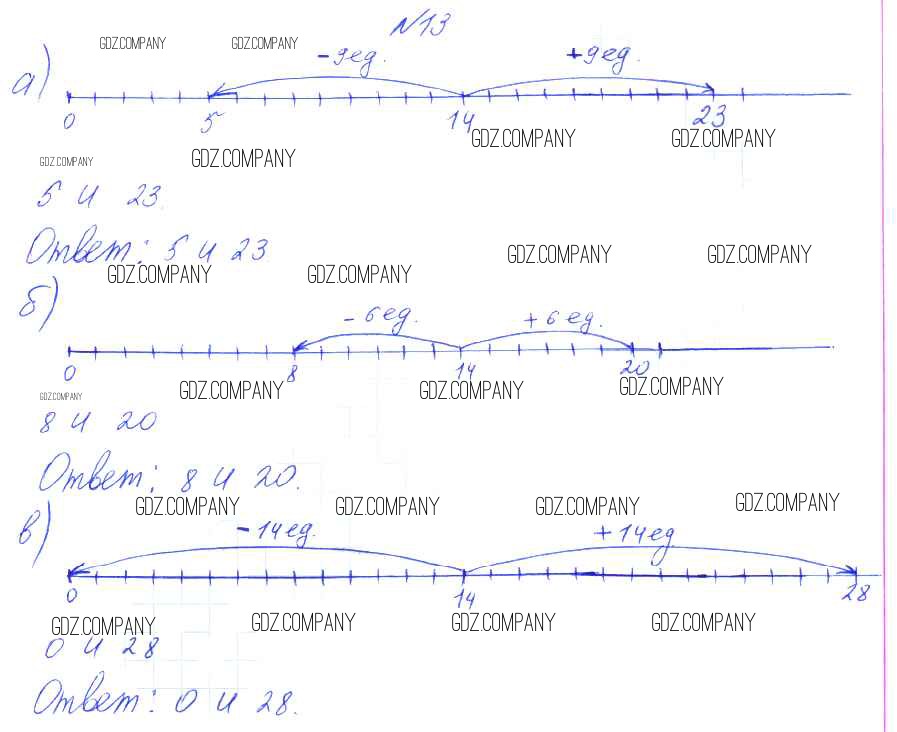 N13
GDZ.COMPANY GDZ.COMPANY
а) -9ед. +9ед.
0 5 14 23
GDZ.COMPANY GDZ.COMPANY
GDZ.COMPANY GDZ.COMPANY
5 и 23.
Ответ: 5 и 23.
GDZ.COMPANY GDZ.COMPANY
GDZ.COMPANY GDZ.COMPANY
б) -6ед. +6ед.
0 8 14 20
GDZ.COMPANY GDZ.COMPANY GDZ.COMPANY
GDZ.COMPANY
8 и 20
Ответ: 8 и 20.
GDZ.COMPANY GDZ.COMPANY GDZ.COMPANY GDZ.COMPANY
в) -14ед. +14ед
0 14 28
GDZ.COMPANY GDZ.COMPANY GDZ.COMPANY GDZ.COMPANY
0 и 28
Ответ: 0 и 28.